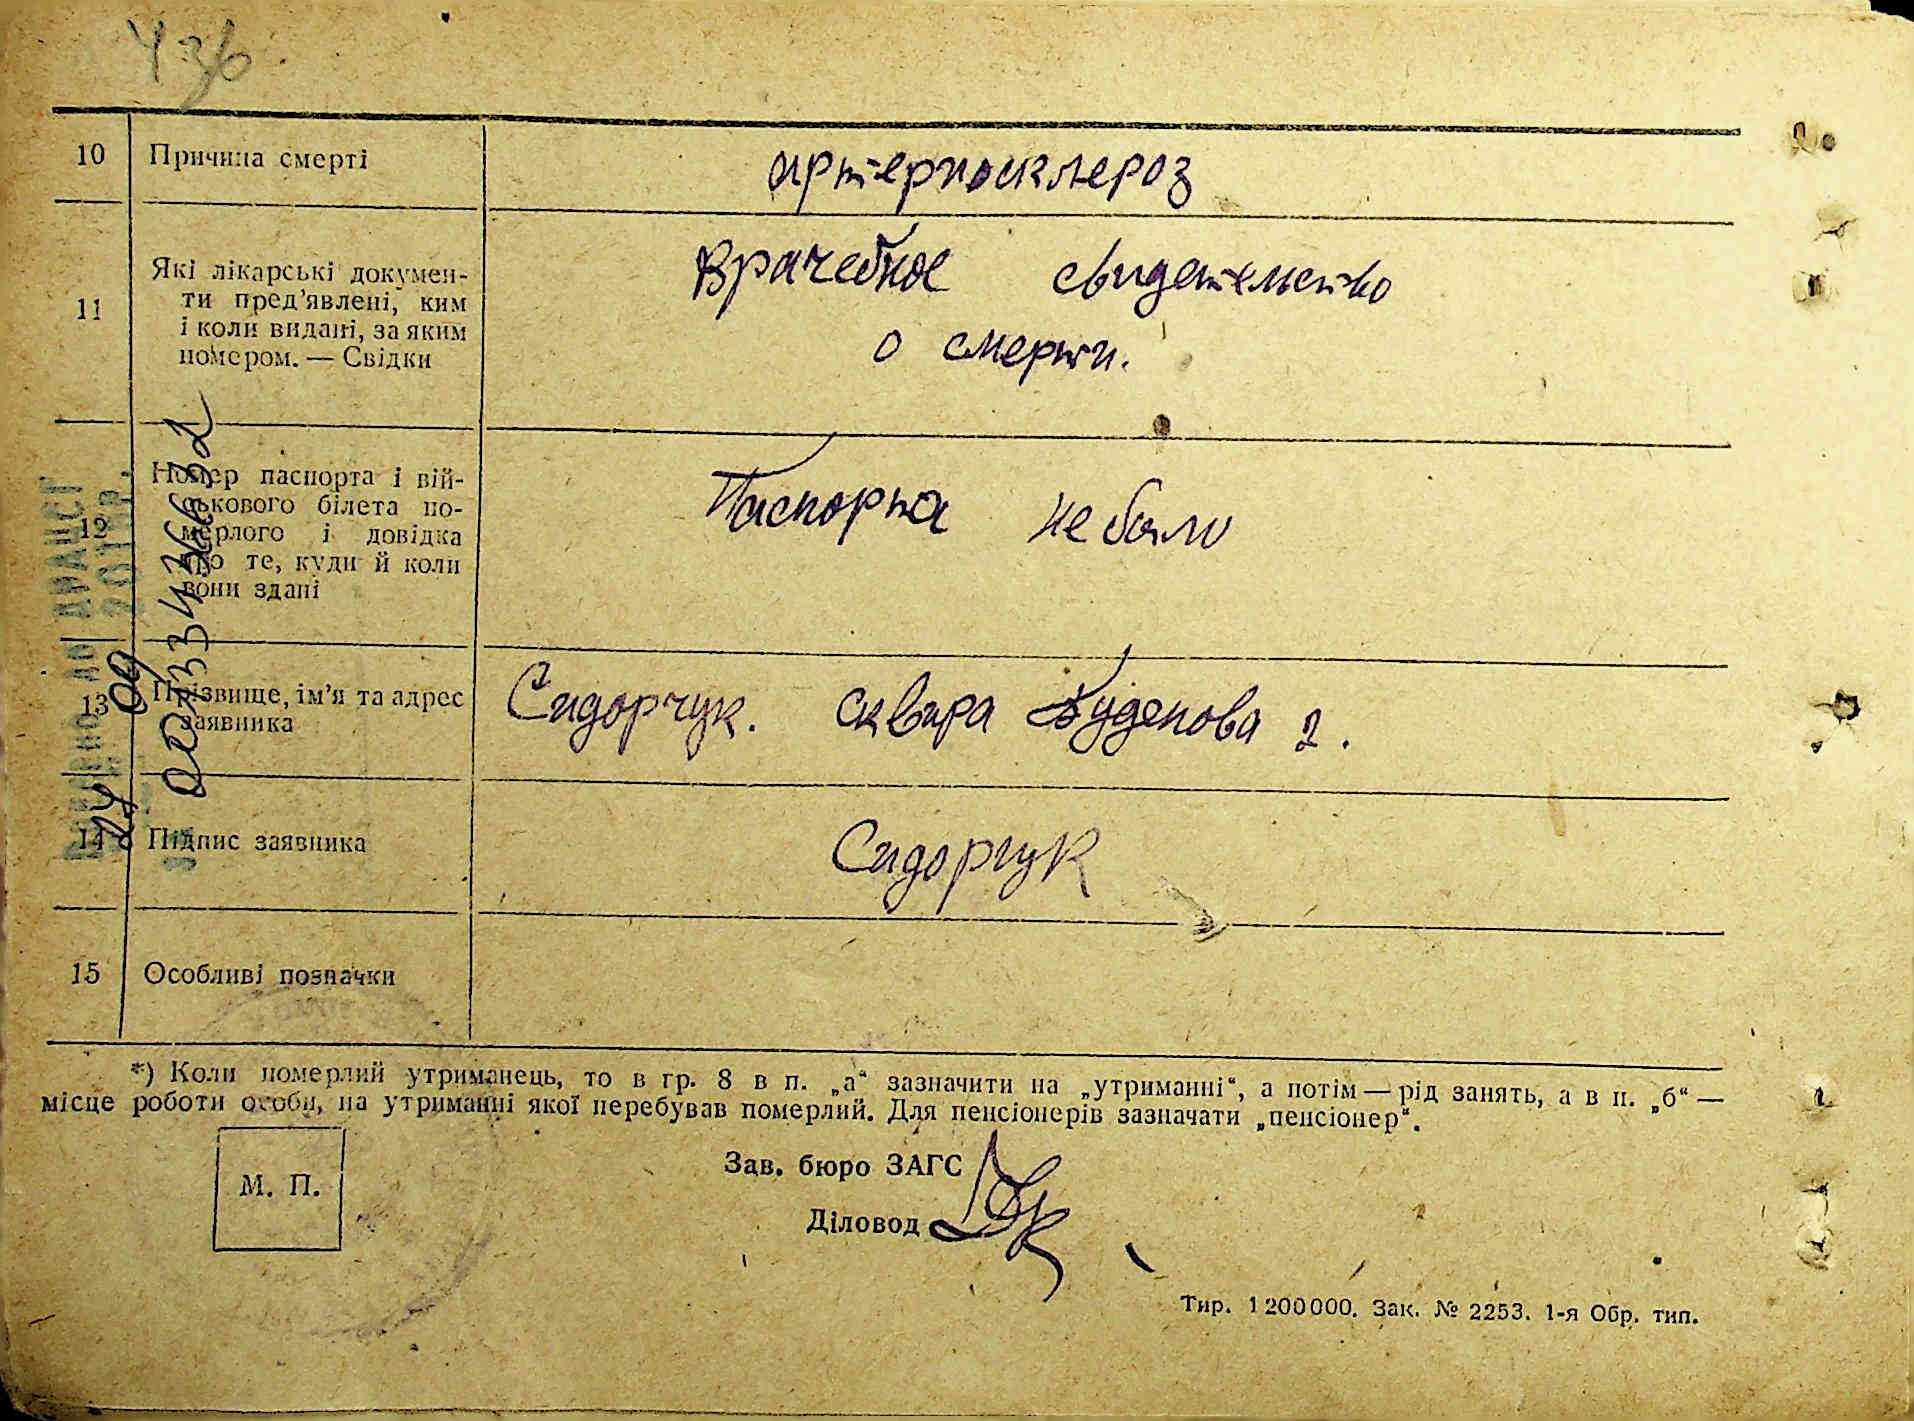 436.
10 Причина смерті артериосклероз
11 Які лікарські докумен-
ти пред’явлені, ким
і коли видані, за яким
номером. — Свідки
Врачебное свидетельство
о смерти.
12 Номер паспорта і вій-
ськового білета по-
мерлого і довідка
про те, куди й коли
вони здані
Паспорта не было
13 Прізвище, ім’я та адрес
заявника
Сидорчук. Сквира Буденова 2.
14 Підпис заявника Сидорчук
15 Особливі позначки
*) Коли померлий утриманець, то в гр. 8 в п. „а“ зазначити на „утриманні“, а потім — рід занять, а в п. „б“ —
місце роботи особи, на утриманні якої перебував померлий. Для пенсіонерів зазначати „пенсіонер“.
М. П.
Зав. бюро ЗАГС
Діловод
Тир. 1 200 000. Зак. № 2253. 1-я Обр. тип.